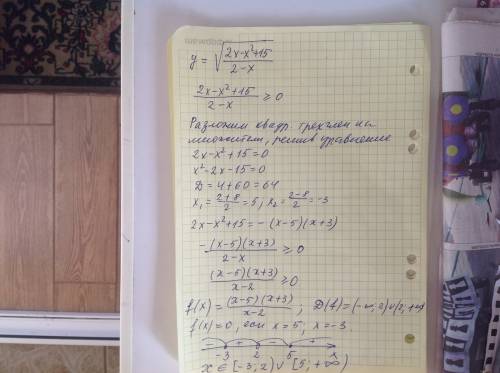 y = √((2x-x²+15)/(2-x))
(2x-x²+15)/(2-x) ≥ 0
Разложим квадр. трехчлен на
множители, решив уравнение
2x-x²+15=0
x²-2x-15=0
D=4+60=64
x₁=(2+8)/2=5; x₂=(2-8)/2=-3
2x-x²+15=-(x-5)(x+3)
-((x-5)(x+3))/(2-x) ≥ 0
((x-5)(x+3))/(x-2) ≥ 0
f(x)=((x-5)(x+3))/(x-2); D(f)=(-∞;2)∪(2;+∞)
f(x)=0, если x=5; x=-3
- + - +
-3 2 5 x
x∈[-3;2)∪[5;+∞)